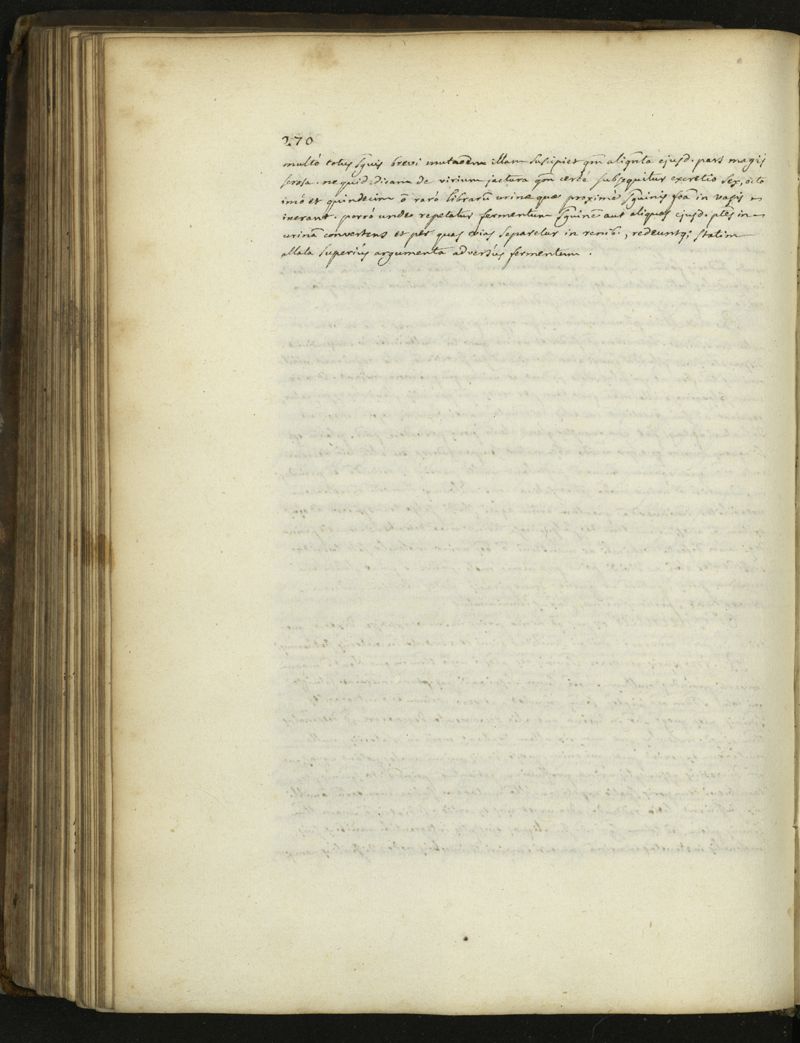 270
multò totus sḡuis brevi mutaōem illam suscipiet qm̄ aliqn̄ta ejusd. pars magis
serosa. ne quid dicam de virium jactura qm̄ certè subsequitur excretio sex, octo
imò et quindecim ō rarò librarū urinæ quæ proximè sḡuinis foā in vasis
inerant. porrò unde repetatur fermentum sḡuinē aut aliquas ejusd. ptēs in
urinā convertens et per quas vias separetur in renib., redeuntq; statim
allata superiùs argumenta adversùs fermentum.